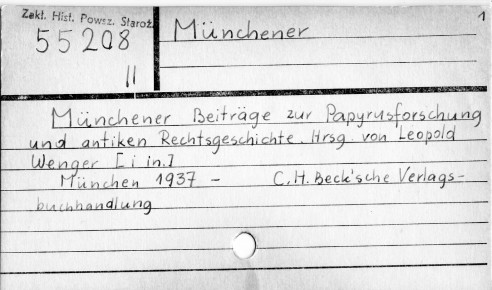 1
Zakł. Hist. Powsz. Staroż.
55208
II
Münchener
Münchener Beiträge zur Papyrusforschung
und antiken Rechtsgeschichte. Hrsg. von Leopold
Wenger [i in.]
München 1937 - C.H. Beck'sche Verlags-
buchhandlung